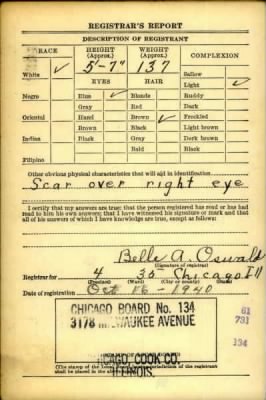 REGISTRAR'S REPORT
DESCRIPTION OF REGISTRANT
RACE HEIGHT (Approx.) WEIGHT (Approx.) COMPLEXION
White ✓ 5'-7" 137 Sallow
EYES HAIR Light ✓
Negro Blue ✓ Blonde Ruddy
Gray Red Dark
Oriental Hazel Brown ✓ Freckled
Brown Black Light brown
Indian Black Gray Dark brown
Bald Black
Filipino
Other obvious physical characteristics that will aid in identification
Scar over right eye
I certify that my answers are true; that the person registered has read or has had
read to him his own answers; that I have witnessed his signature or mark and that
all of his answers of which I have knowledge are true, except as follows:
Belle A. Oswald
(Signature of registrar)
Registrar for 4 30 Chicago Ill
(Precinct) (Ward) (City or county)
Date of registration Oct 16 - 1940
CHICAGO BOARD No. 134 61
3178 MILWAUKEE AVENUE 731
134
CHICAGO, COOK CO.
ILLINOIS
(The stamp of the Local Board
shall be placed in the above space)